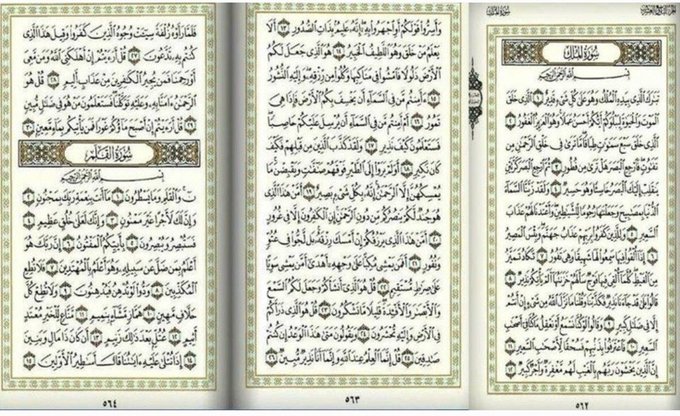 سُورَةُ المُلْكِ
سُورَةُ المُلْكِ
بِسْمِ اللَّهِ الرَّحْمَٰنِ الرَّحِيمِ
تَبَٰرَكَ الَّذِي بِيَدِهِ الْمُلْكُ وَهُوَ عَلَىٰ كُلِّ شَيْءٍ قَدِيرٌ ١ الَّذِي خَلَقَ
الْمَوْتَ وَالْحَيَوٰةَ لِيَبْلُوَكُمْ أَيُّكُمْ أَحْسَنُ عَمَلًا وَهُوَ الْعَزِيزُ الْغَفُورُ ٢
الَّذِي خَلَقَ سَبْعَ سَمَٰوَٰتٍ طِبَاقًا مَّا تَرَىٰ فِي خَلْقِ الرَّحْمَٰنِ مِن
تَفَٰوُتٍ فَارْجِعِ الْبَصَرَ هَلْ تَرَىٰ مِن فُطُورٍ ٣ ثُمَّ ارْجِعِ الْبَصَرَ كَرَّتَيْنِ
يَنقَلِبْ إِلَيْكَ الْبَصَرُ خَاسِئًا وَهُوَ حَسِيرٌ ٤ وَلَقَدْ زَيَّنَّا السَّمَآءَ
الدُّنْيَا بِمَصَٰبِيحَ وَجَعَلْنَٰهَا رُجُومًا لِّلشَّيَٰطِينِ وَأَعْتَدْنَا لَهُمْ عَذَابَ
السَّعِيرِ ٥ وَلِلَّذِينَ كَفَرُوا بِرَبِّهِمْ عَذَابُ جَهَنَّمَ وَبِئْسَ الْمَصِيرُ
٦ إِذَآ أُلْقُوا فِيهَا سَمِعُوا لَهَا شَهِيقًا وَهِيَ تَفُورُ ٧ تَكَادُ تَمَيَّزُ
مِنَ الْغَيْظِ كُلَّمَآ أُلْقِيَ فِيهَا فَوْجٌ سَأَلَهُمْ خَزَنَتُهَآ أَلَمْ يَأْتِكُمْ نَذِيرٌ ٨
قَالُوا بَلَىٰ قَدْ جَآءَنَا نَذِيرٌ فَكَذَّبْنَا وَقُلْنَا مَا نَزَّلَ اللَّهُ مِن شَيْءٍ إِنْ أَنتُمْ
إِلَّا فِي ضَلَٰلٍ كَبِيرٍ ٩ وَقَالُوا لَوْ كُنَّا نَسْمَعُ أَوْ نَعْقِلُ مَا كُنَّا فِي أَصْحَٰبِ
السَّعِيرِ ١٠ فَاعْتَرَفُوا بِذَنبِهِمْ فَسُحْقًا لِّأَصْحَٰبِ السَّعِيرِ ١١
إِنَّ الَّذِينَ يَخْشَوْنَ رَبَّهُم بِالْغَيْبِ لَهُم مَّغْفِرَةٌ وَأَجْرٌ كَبِيرٌ ١٢
٥٦٢
وَأَسِرُّوا قَوْلَكُمْ أَوِ اجْهَرُوا بِهِ إِنَّهُ عَلِيمٌ بِذَاتِ الصُّدُورِ ١٣ أَلَا
يَعْلَمُ مَنْ خَلَقَ وَهُوَ اللَّطِيفُ الْخَبِيرُ ١٤ هُوَ الَّذِي جَعَلَ لَكُمُ
الْأَرْضَ ذَلُولًا فَامْشُوا فِي مَنَاكِبِهَا وَكُلُوا مِن رِّزْقِهِ وَإِلَيْهِ النُّشُورُ
١٥ ءَأَمِنتُم مَّن فِي السَّمَآءِ أَن يَخْسِفَ بِكُمُ الْأَرْضَ فَإِذَا هِيَ
تَمُورُ ١٦ أَمْ أَمِنتُم مَّن فِي السَّمَآءِ أَن يُرْسِلَ عَلَيْكُمْ حَاصِبًا
فَسَتَعْلَمُونَ كَيْفَ نَذِيرِ ١٧ وَلَقَدْ كَذَّبَ الَّذِينَ مِن قَبْلِهِمْ فَكَيْفَ
كَانَ نَكِيرِ ١٨ أَوَلَمْ يَرَوْا إِلَى الطَّيْرِ فَوْقَهُمْ صَٰٓفَّٰتٍ وَيَقْبِضْنَ مَا
يُمْسِكُهُنَّ إِلَّا الرَّحْمَٰنُ إِنَّهُ بِكُلِّ شَيْءٍ بَصِيرٌ ١٩ أَمَّنْ هَٰذَا الَّذِي
هُوَ جُندٌ لَّكُمْ يَنصُرُكُم مِّن دُونِ الرَّحْمَٰنِ إِنِ الْكَٰفِرُونَ إِلَّا فِي غُرُورٍ
٢٠ أَمَّنْ هَٰذَا الَّذِي يَرْزُقُكُمْ إِنْ أَمْسَكَ رِزْقَهُ بَل لَّجُّوا فِي عُتُوٍّ
وَنُفُورٍ ٢١ أَفَمَن يَمْشِي مُكِبًّا عَلَىٰ وَجْهِهِ أَهْدَىٰٓ أَمَّن يَمْشِي سَوِيًّا
عَلَىٰ صِرَٰطٍ مُّسْتَقِيمٍ ٢٢ قُلْ هُوَ الَّذِي أَنشَأَكُمْ وَجَعَلَ لَكُمُ السَّمْعَ
وَالْأَبْصَٰرَ وَالْأَفْـِٔدَةَ قَلِيلًا مَّا تَشْكُرُونَ ٢٣ قُلْ هُوَ الَّذِي ذَرَأَكُمْ
فِي الْأَرْضِ وَإِلَيْهِ تُحْشَرُونَ ٢٤ وَيَقُولُونَ مَتَىٰ هَٰذَا الْوَعْدُ إِن كُنتُمْ
صَٰدِقِينَ ٢٥ قُلْ إِنَّمَا الْعِلْمُ عِندَ اللَّهِ وَإِنَّمَآ أَنَا نَذِيرٌ مُّبِينٌ ٢٦
٥٦٣
فَلَمَّا رَأَوْهُ زُلْفَةً سِيٓـَٔتْ وُجُوهُ الَّذِينَ كَفَرُوا وَقِيلَ هَٰذَا الَّذِي
كُنتُم بِهِ تَدَّعُونَ ٢٧ قُلْ أَرَءَيْتُمْ إِنْ أَهْلَكَنِيَ اللَّهُ وَمَن مَّعِيَ
أَوْ رَحِمَنَا فَمَن يُجِيرُ الْكَٰفِرِينَ مِنْ عَذَابٍ أَلِيمٍ ٢٨ قُلْ هُوَ
الرَّحْمَٰنُ ءَامَنَّا بِهِ وَعَلَيْهِ تَوَكَّلْنَا فَسَتَعْلَمُونَ مَنْ هُوَ فِي ضَلَٰلٍ مُّبِينٍ
٢٩ قُلْ أَرَءَيْتُمْ إِنْ أَصْبَحَ مَآؤُكُمْ غَوْرًا فَمَن يَأْتِيكُم بِمَآءٍ مَّعِينٍ ٣٠
سُورَةُ القَلَمِ
بِسْمِ اللَّهِ الرَّحْمَٰنِ الرَّحِيمِ
نٓ وَالْقَلَمِ وَمَا يَسْطُرُونَ ١ مَآ أَنتَ بِنِعْمَةِ رَبِّكَ بِمَجْنُونٍ ٢
وَإِنَّ لَكَ لَأَجْرًا غَيْرَ مَمْنُونٍ ٣ وَإِنَّكَ لَعَلَىٰ خُلُقٍ عَظِيمٍ ٤
فَسَتُبْصِرُ وَيُبْصِرُونَ ٥ بِأَييِّكُمُ الْمَفْتُونُ ٦ إِنَّ رَبَّكَ هُوَ
أَعْلَمُ بِمَن ضَلَّ عَن سَبِيلِهِ وَهُوَ أَعْلَمُ بِالْمُهْتَدِينَ ٧ فَلَا تُطِعِ
الْمُكَذِّبِينَ ٨ وَدُّوا لَوْ تُدْهِنُ فَيُدْهِنُونَ ٩ وَلَا تُطِعْ كُلَّ
حَلَّافٍ مَّهِينٍ ١٠ هَمَّازٍ مَّشَّآءٍ بِنَمِيمٍ ١١ مَّنَّاعٍ لِّلْخَيْرِ مُعْتَدٍ
أَثِيمٍ ١٢ عُتُلٍّ بَعْدَ ذَٰلِكَ زَنِيمٍ ١٣ أَن كَانَ ذَا مَالٍ وَبَنِينَ
١٤ إِذَا تُتْلَىٰ عَلَيْهِ ءَايَٰتُنَا قَالَ أَسَٰطِيرُ الْأَوَّلِينَ ١٥
٥٦٤